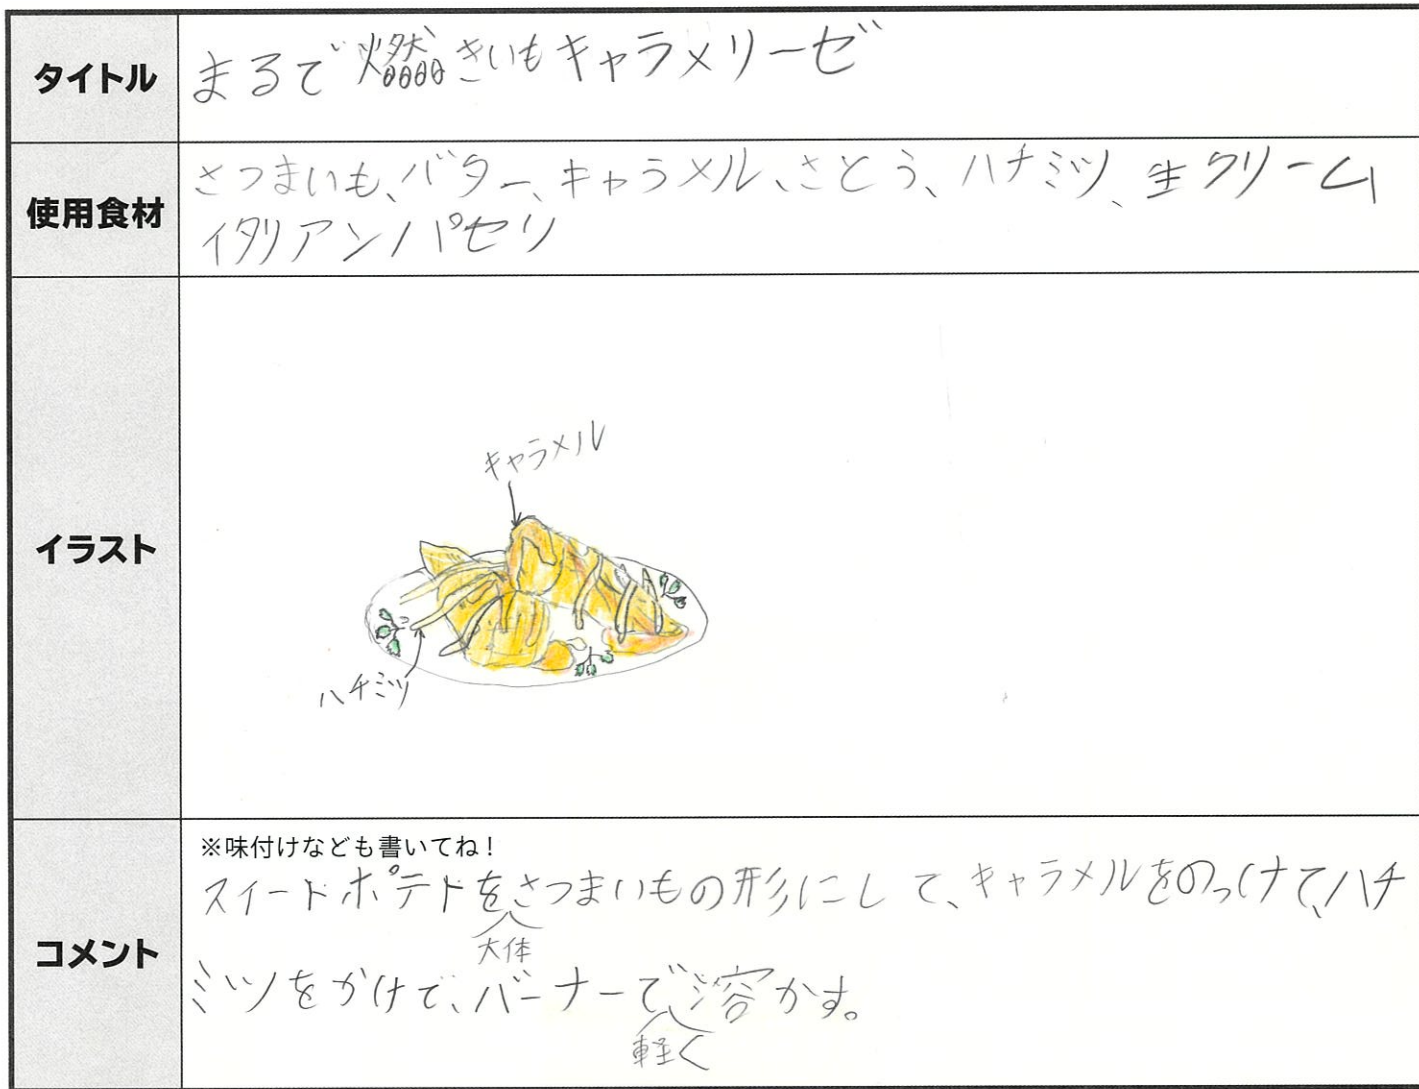 タイトル
まるで燃きいもキャラメリーゼ
使用食材
さつまいも、バター、キャラメル、さとう、ハチミツ、生クリーム
イタリアンパセリ
イラスト
キャラメル
ハチミツ
コメント
※味付けなども書いてね!
スイートポテトをさつまいもの形にして、キャラメルをのっけて、ハチ
大体
ミツをかけて、バーナーで溶かす。
軽く